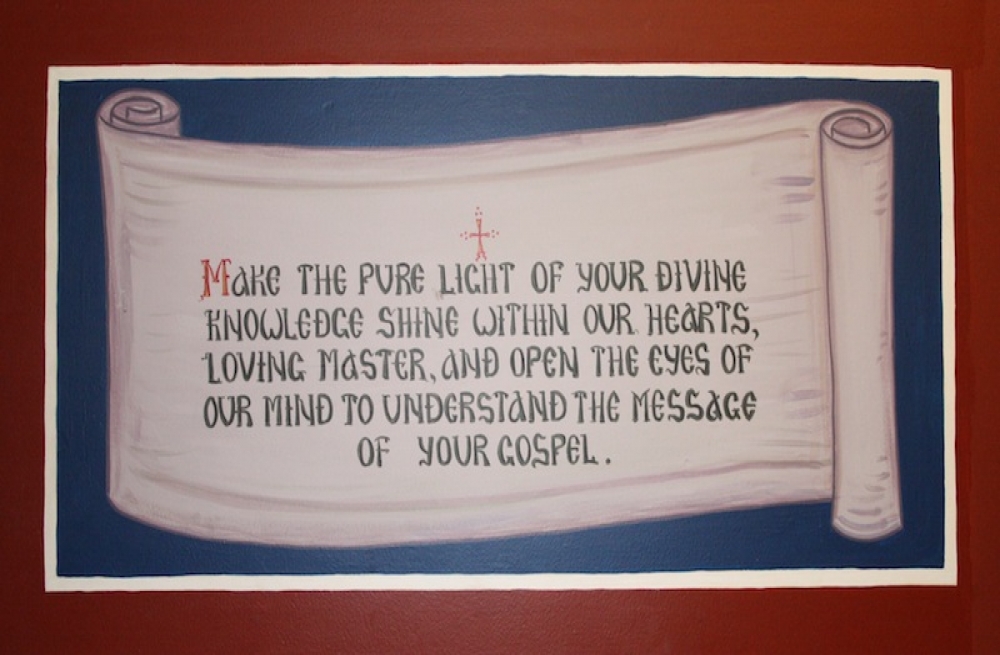 Make the pure light of your divine
knowledge shine within our hearts,
loving master, and open the eyes of
our mind to understand the message
of your gospel.